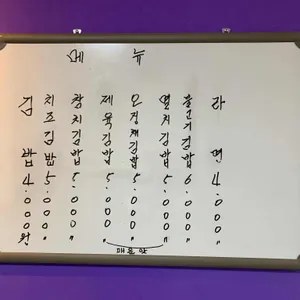 메뉴
김밥 4.000원
치즈김밥 5.000〃
참치김밥 5.000〃
제육김밥 5.000〃
오징채김밥 5.000〃
멸치김밥 5.000〃
불고기김밥 6.000〃
라면 4.000〃
매운맛